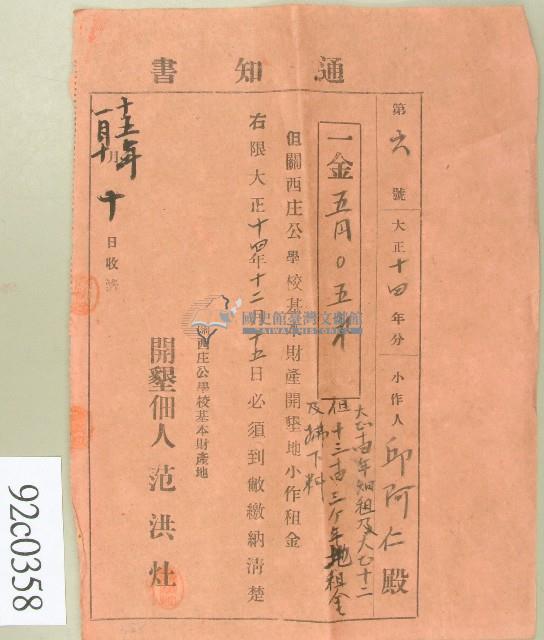 通知書
第六號 大正十四年分 小作人 邱阿仁殿
大正十四年畑租及大正十二
一金五円〇五升
但十三十四三ヶ年地租金
及拂下料
但關西庄公學校基本財產開墾地小作租金
右限大正十四年十二月十五日必須到敝繳納清楚
關西庄公學校基本財產地
開墾佃人 范洪灶
十五年
一月十
十日收
國史館臺灣文獻館
TAIWAN HISTORICA
92c0358